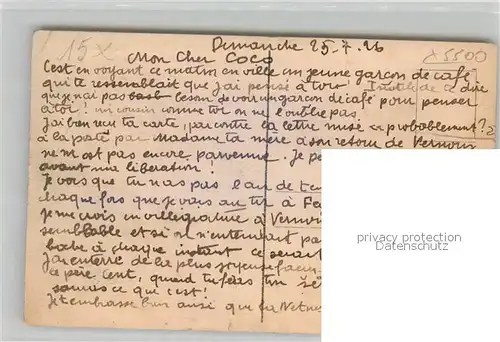 15x
Dimanche 25.7.26
x5500
Mon Cher Coco
C'est en voyant ce matin en ville un jeune garçon de café
qui te ressemblait que j'ai pensé à toi! Inutile de dire
que je n'ai pas besoin de voir un garçon de café pour penser
à toi! un cousin comme toi on ne l'oublie pas.
J'ai bien reçu ta carte, par contre la lettre mise probablement?
à la poste par Madame ta mère à son retour de Vernon
ne m'est pas encore parvenue. Je
avant une libération!
Je vois que tu n'as pas l'air de
chaque fois que je vais au tir à
je me crois en villégiature à
semblable et si on n'entendait pas
à chaque instant ce serait
J'ai enterré de la plus joyeuse
ce père Cent, quand tu feras ton
sauras ce que c'est!
Je t'embrasse bien ainsi que
privacy protection
watermark